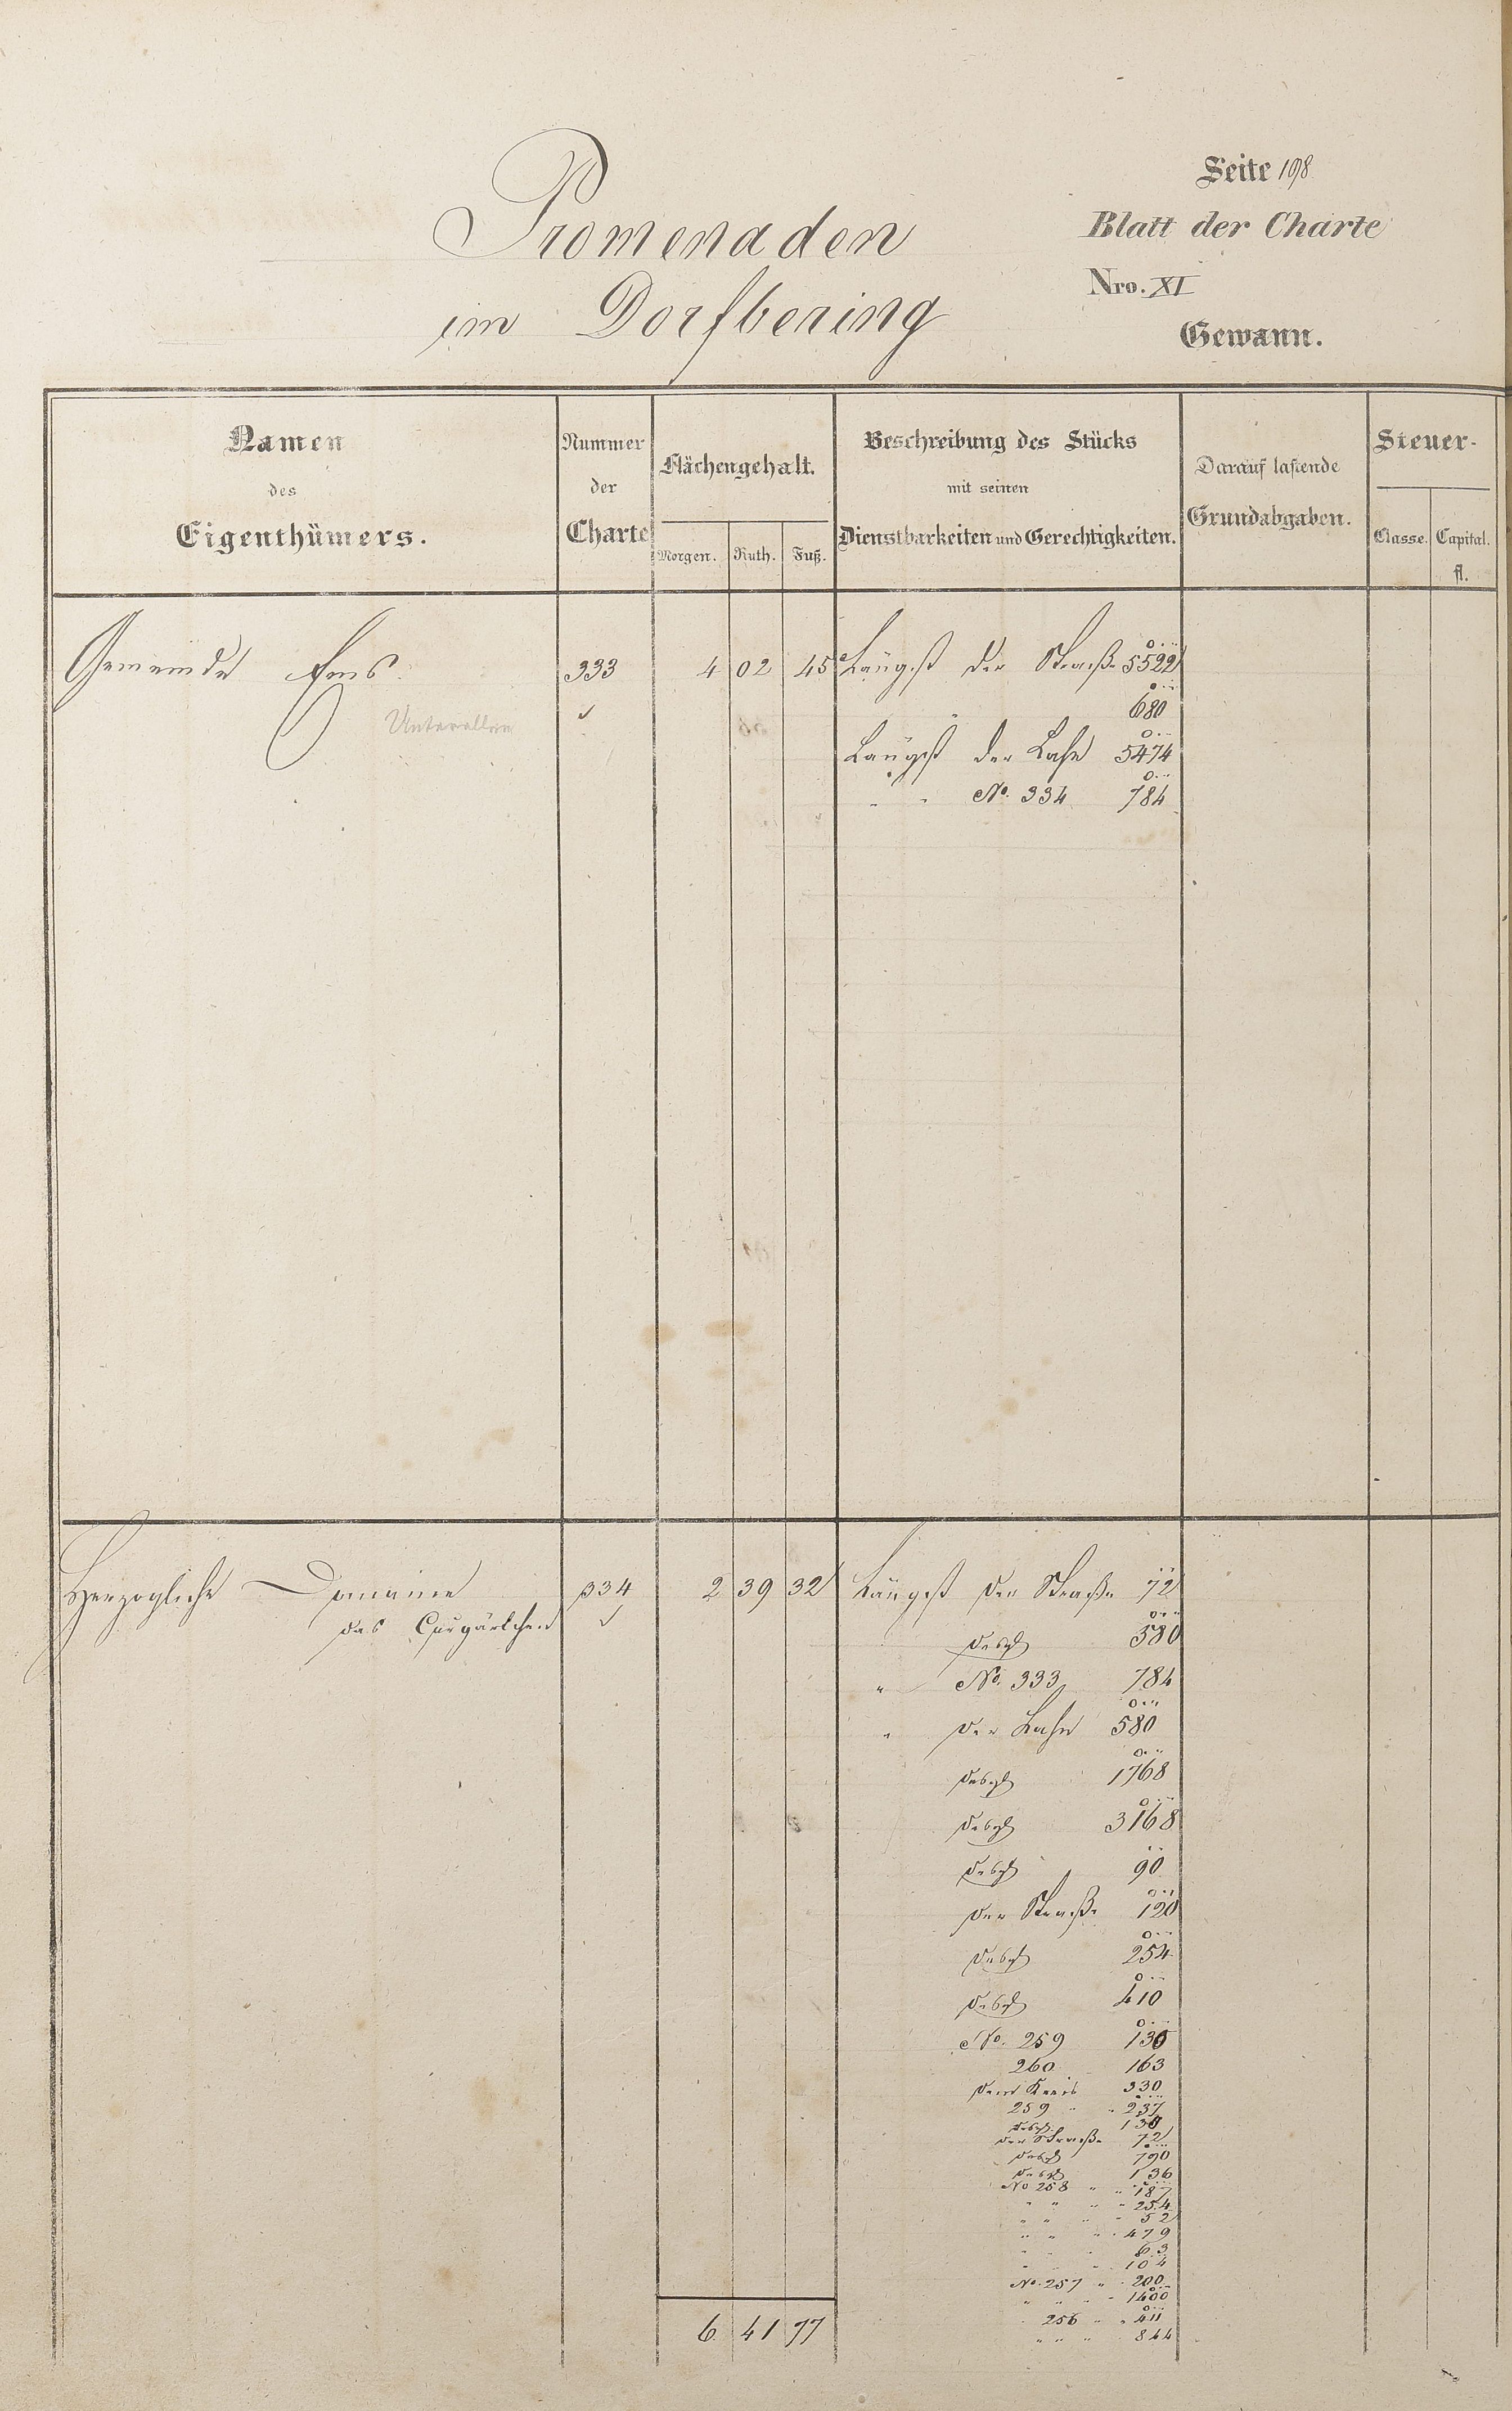 Seite 198
Promenaden
Blatt der Charte
Nro. XI
im Dorfbering
Gewann.
Namen des Eigenthümers.
Nummer der Charte
Flächengehalt.
Morgen. Ruth. Fuß.
Beschreibung des Stücks
mit seinen
Dienstbarkeiten und Gerechtigkeiten.
Darauf lastende
Grundabgaben.
Steuer-
Classe. Capital.
fl.
Gemeinde Ems 333 4 02 45 Längst der Straße 5522
" 680
Längst der Lahn 5474
" " No. 334 784
Herzogliche Domaine 334 2 39 32 Längst der Straße 72
das Curgärtchen
desgl 380
" No. 333 784
" der Lahn 580
desgl 1768
desgl 3168
desgl 90
der Straße 120
desgl 254
desgl 410
No. 259 130
260 163
dem 330
259 " " 237
desgl. 130
der Straße 72
desgl 790
desgl 136
No 258 " " 187
" " " " 254
" " " " 52
" " " " 479
" " " 63
" " " 104
No. 257 " " 200
" " " " 1400
256 " " 411
" " " 844
6 41 77